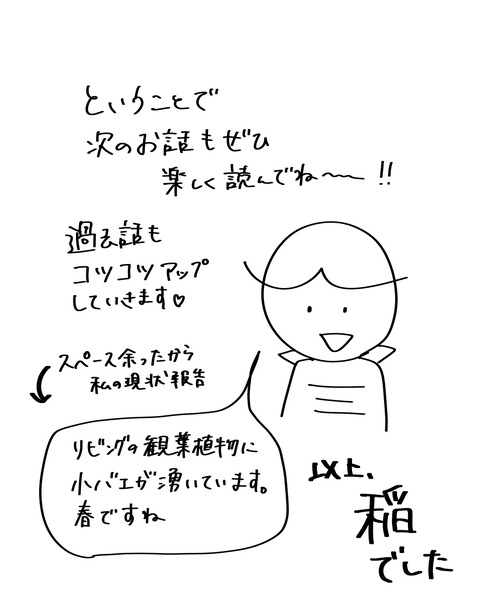 ということで
次のお話もぜひ
楽しく読んでね〜〜!!
過去話も
コツコツアップ
していきます♡
スペース余ったから
私の現状報告
リビングの観葉植物に
小バエが湧いています。
春ですね
以上、
稲
でした